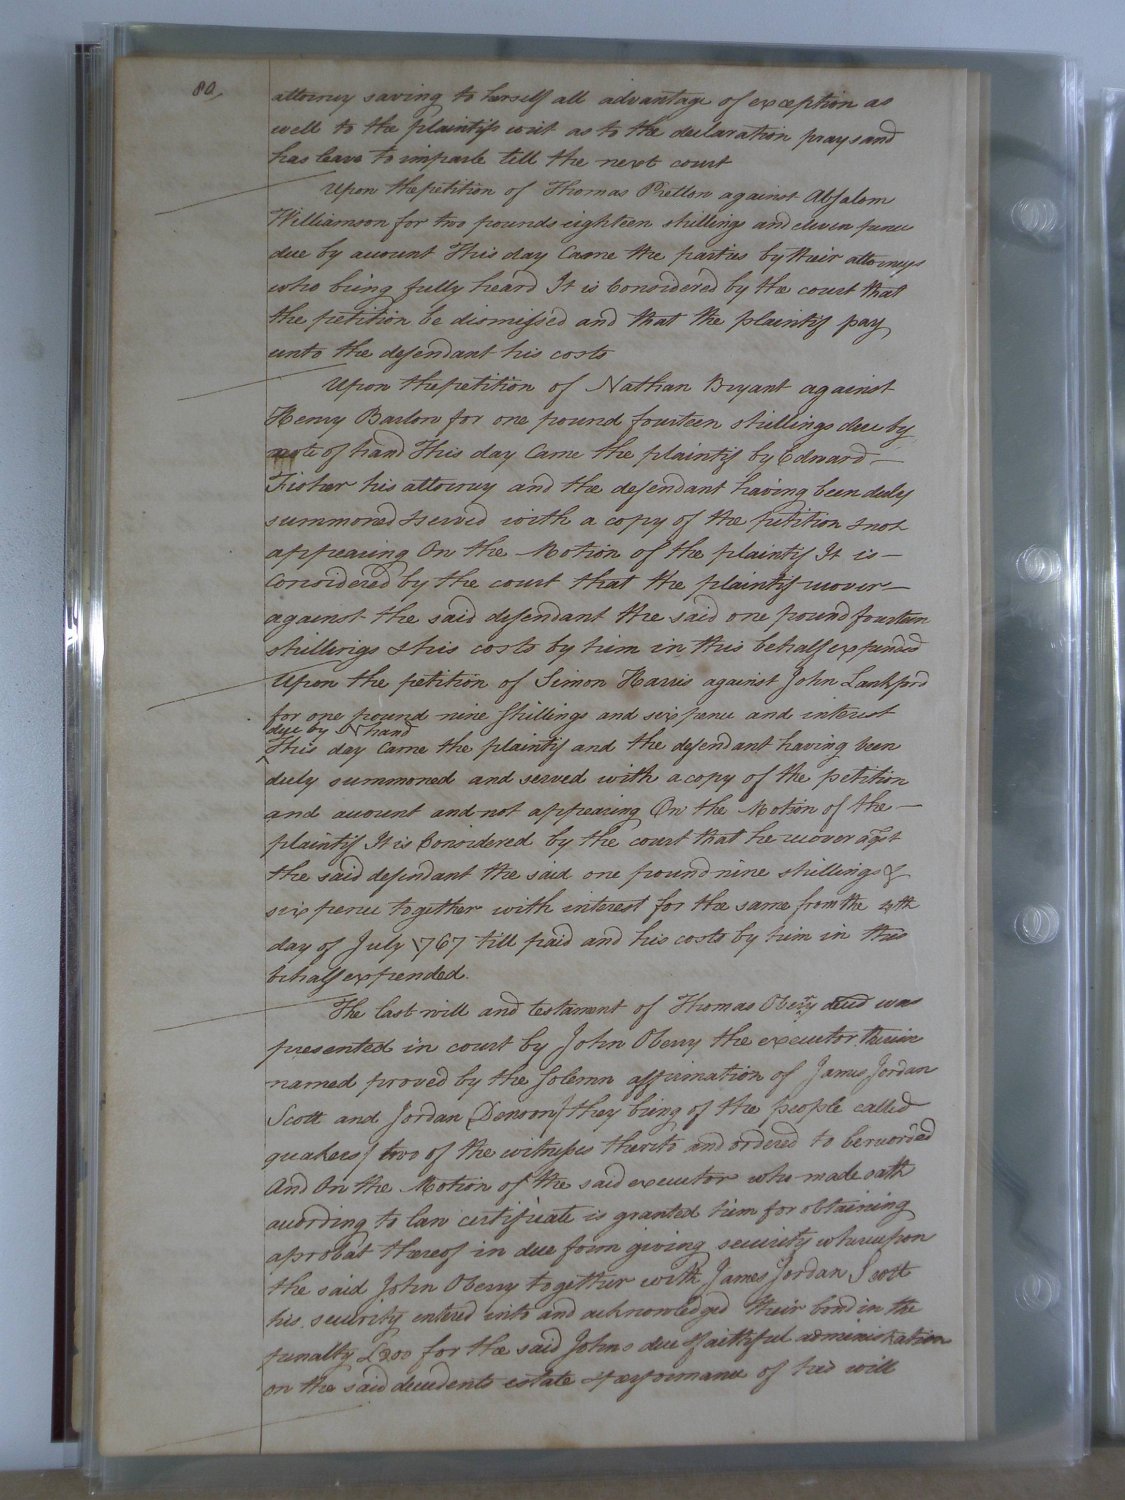 80
attorney saving to herself all advantage of exception as
well to the plaintifs writ as to the declaration prays and
has leave to imparle till the next court
Upon the petition of Thomas against Absalom
Williamson for two pounds eighteen shillings and eleven pence
due by account This day Came the parties by their attorneys
who being fully heard It is Considered by the court that
the petition be dismissed and that the plaintif pay
unto the defendant his costs
Upon the petition of Nathan Bryant against
Henry Barlow for one pound fourteen shillings due by
note of hand This day Came the plaintif by Edward
Fisher his attorney and the defendant having been duly
summoned & served with a copy of the petition & not
appearing On the Motion of the plaintif It is
Considered by the court that the plaintif recover
against the said defendant the said one pound fourteen
shillings & his costs by him in this behalf expended
Upon the petition of Simon Harris against John Lankford
for one pound nine shillings and sixpence and interest
due by hand
This day Came the plaintif and the defendant having been
duly summoned and served with a copy of the petition
and account and not appearing On the Motion of the
plaintif It is Considered by the court that he recover agst
the said defendant the said one pound nine shillings &
sixpence together with interest for the same from the 4th
day of July 1767 till paid and his costs by him in this
behalf expended.
The last will and testament of Thomas Oberry decd was
presented in court by John Oberry the executor therein
named proved by the solemn affirmation of James Jordan
Scott and Jordan Denson (they being of the people called
quakers) two of the witnesses thereto and ordered to be recorded
And On the Motion of the said executor who made oath
according to law certificate is granted him for obtaining
a probat thereof in due form giving security whereupon
the said John Oberry together with James Jordan Scott
his security entered into and acknowledged their bond in the
penalty £200 for the said Johns due & faithful administration
on the said decedents estate & performance of his will